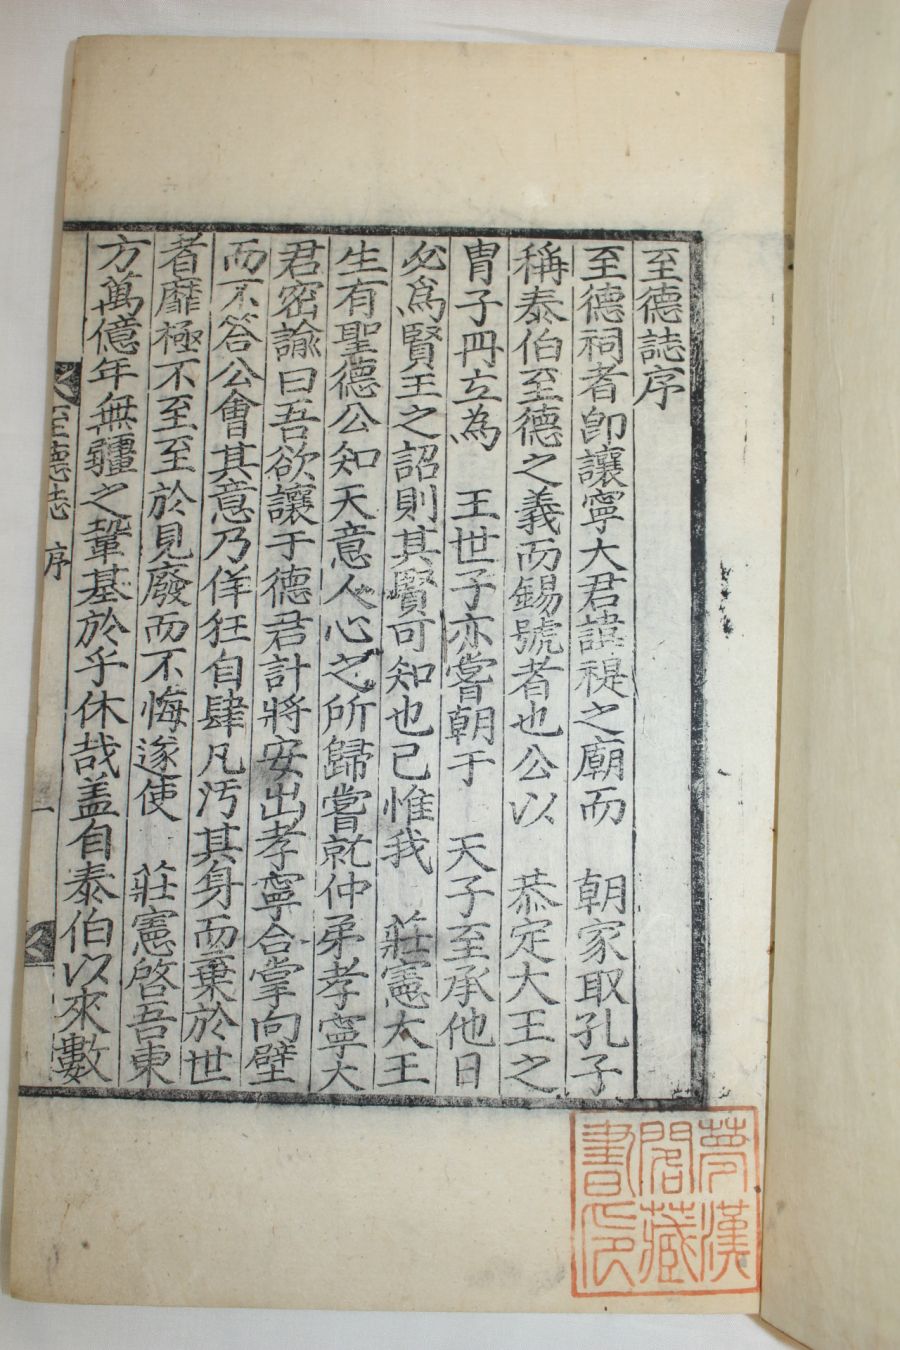 至德誌序
至德祠者卽讓寧大君諱禔之廟而 朝家取孔子
稱泰伯至德之義而錫號者也公以 恭定大王之
冑子冊立為 王世子亦嘗朝于 天子至承他日
必爲賢王之詔則其賢可知也已惟我 莊憲大王
生有聖德公知天意人心之所歸嘗就仲弟孝寧大
君密諭曰吾欲讓于德君計將安出孝寧合掌向壁
而不答公會其意乃佯狂自肆凡汚其身而棄於世
者靡極不至至於見廢而不悔遂使 莊憲啓吾東
方萬億年無疆之鞏基於乎休哉盖自泰伯以來數
至德誌 序 一
夢漢
閣藏
書印